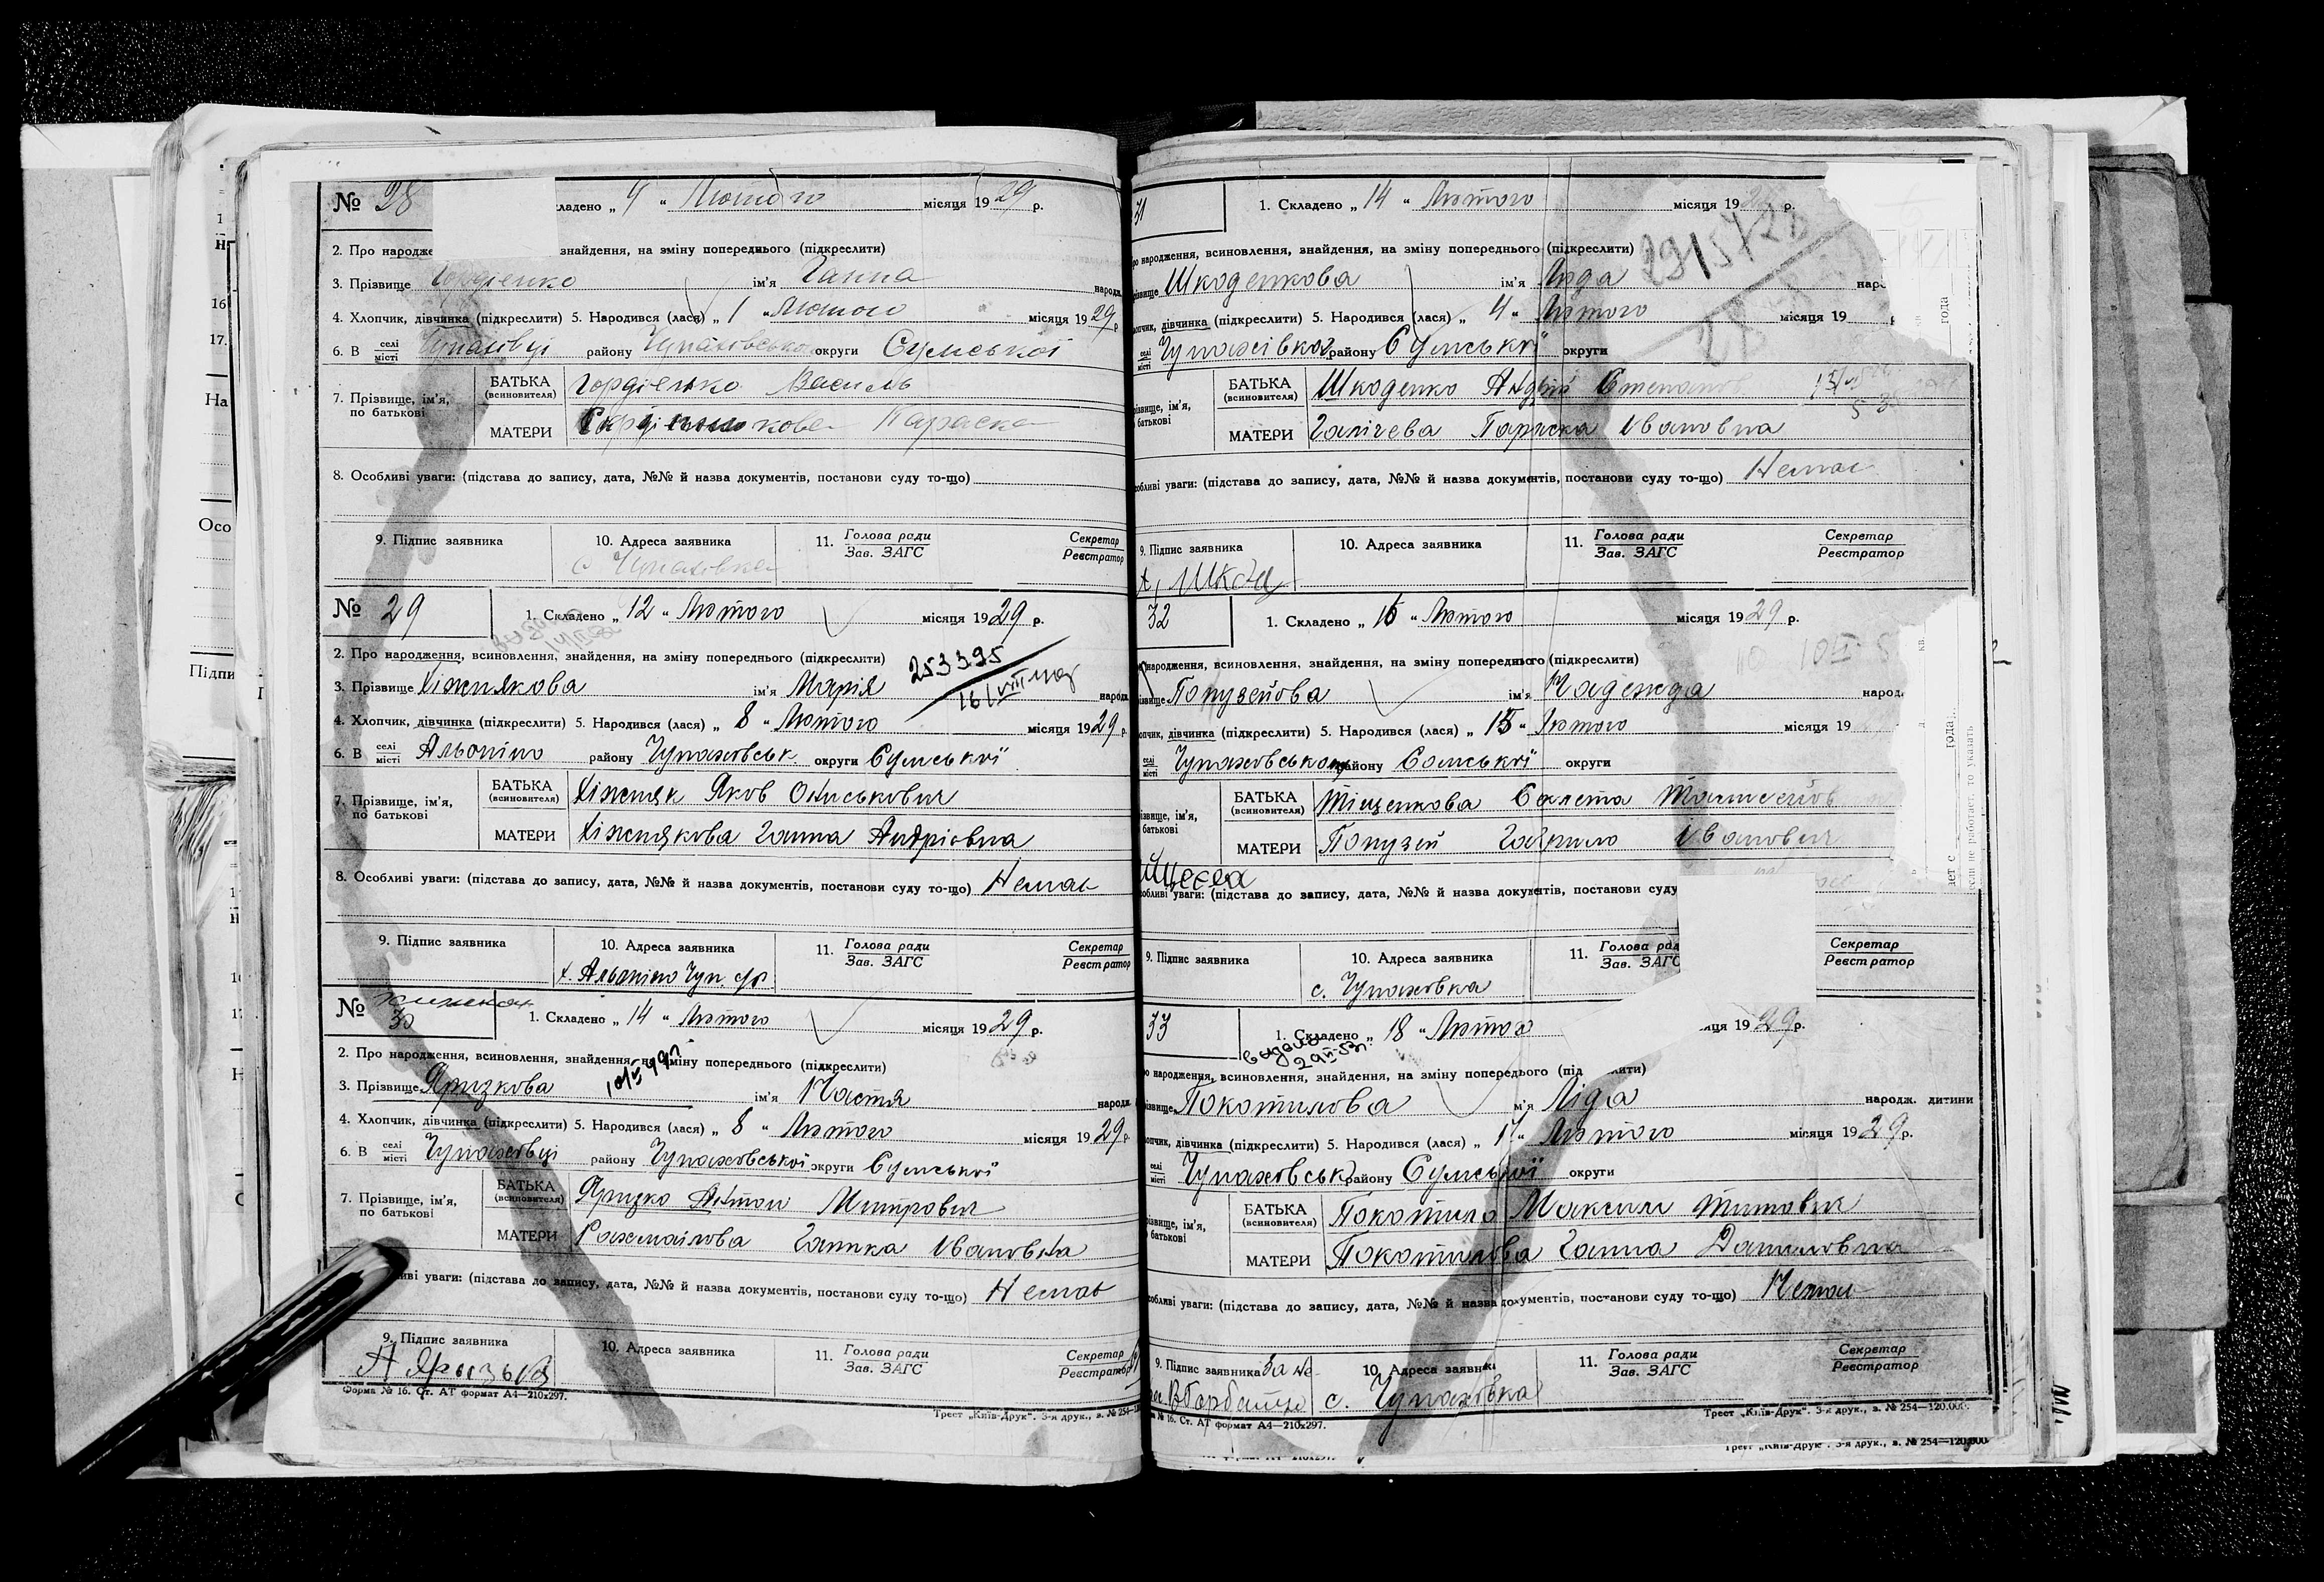 № 28
кладено „ 4 “ Лютого місяця 1929 р.
2. Про народже
знайдення, на зміну попереднього (підкреслити)
3. Прізвище Гордієнко ім'я Ганна народж
4. Хлопчик, дівчинка (підкреслити) 5. Народився (лася) „ 1 “ Лютого місяця 1929 р
6. В селі місті Чупахівці району Чупахівсько округи Сумської
7. Прізвище, ім'я, по батькові
БАТЬКА (всиновителя) Гордієнко Василь
МАТЕРИ Параска
8. Особливі уваги: (підстава до запису, дата, №№ й назва документів, постанови суду то-що)
9. Підпис заявника
10. Адреса заявника
с Чупахівка
11. Голова ради Зав. ЗАГС
Секретар Реєстратор
№ 29
1. Складено „ 12 “ Лютого місяця 1929 р.
2. Про народження, всиновлення, знайдення, на зміну попереднього (підкреслити)
253395
3. Прізвище Хіжнякова ім'я Марія народж
4. Хлопчик, дівчинка (підкреслити) 5. Народився (лася) „ 8 “ Лютого місяця 1929 р.
6. В селі місті Альошіно району Чупаховськ. округи Сумської
7. Прізвище, ім'я, по батькові
БАТЬКА (всиновителя) Хіжняк Яков Описькович
МАТЕРИ Хіжнякова Ганна Андріовна
8. Особливі уваги: (підстава до запису, дата, №№ й назва документів, постанови суду то-що) Немає
9. Підпис заявника
10. Адреса заявника
х. Альошіно Чуп. с/р.
11. Голова ради Зав. ЗАГС
Секретар Реєстратор
№ 30
1. Складено „ 14 “ Лютого місяця 1929 р.
2. Про народження, всиновлення, знайдення, на зміну попереднього (підкреслити)
3. Прізвище Яризкова ім'я Настя народж
4. Хлопчик, дівчинка (підкреслити) 5. Народився (лася) „ 8 “ Лютого місяця 1929 р
6. В селі місті Чупаховці району Чупаховської округи Сумської
7. Прізвище, ім'я, по батькові
БАТЬКА (всиновителя) Яризко Антон Митрович
МАТЕРИ Ганнка Ивановна
иві уваги: (підстава до запису, дата, №№ й назва документів, постанови суду то-що) Немає
9. Підпис заявника
10. Адреса заявника
11. Голова ради Зав. ЗАГС
Секретар Реєстратор
Форма № 16. Ст. АТ формат А4—210х297.
Трест „Київ-Друк“. 3-я друк., з. № 254—12
31
1. Складено „ 14 “ Лютого місяця 19 р.
ро народження, всиновлення, знайдення, на зміну попереднього (підкреслити)
різвище Шкоденкова ім'я Люда нар
опчик, дівчинка (підкреслити) 5. Народився (лася) „ 4 “ Лютого місяця 19
селі місті Чупахівка району Сумської округи
різвище, ім'я, батькові
БАТЬКА (всиновителя) Шкоденко Андрій Степанов
МАТЕРИ Галічева Параска Ивановна
собливі уваги: (підстава до запису, дата, №№ й назва документів, постанови суду то-що) Немає
9. Підпис заявника
10. Адреса заявника
11. Голова ради Зав. ЗАГС
Секретар Реєстратор
32
1. Складено „ 15 “ Лютого місяця 1929 р.
народження, всиновлення, знайдення, на зміну попереднього (підкреслити)
ізвище Попузейова ім'я Надежда народ
опчик, дівчинка (підкреслити) 5. Народився (лася) „ 15 “ Лютого місяця 19
селі місті Чупаховсько району Сомської округи
різвище, ім'я, батькові
БАТЬКА (всиновителя) Тіщенкова
МАТЕРИ Попузей Гаврило Иванович
собливі уваги: (підстава до запису, дата, №№ й назва документів, постанови суду
9. Підпис заявника
10. Адреса заявника
с. Чупаховка
11. Голова рад Зав. ЗАГС
Секретар Реєстратор
33
1. Складено „ 18 “ Лютого яця 1929 р.
о народження, всиновлення, знайдення, на зміну попереднього (під лити)
ізвище Покотилова м'я Ліда народж. дитини
опчик, дівчинка (підкреслити) 5. Народився (лася) „ 17 “ Лютого місяця 1929 р.
селі місті Чупаховськ району Сумської округи
різвище, ім'я, батькові
БАТЬКА (всиновителя) Покотило Максим Титович
МАТЕРИ Покотилова Ганна Даниловна
собливі уваги: (підстава до запису, дата, №№ й назва документів, постанови суду то-що) Немає
9. Підпис заявника
10. Адреса заявника
с. Чупаховка
11. Голова ради Зав. ЗАГС
Секретар Реєстратор
а № 16. Ст. АТ формат А4—210х297.
Трест „Київ-Друк“. 3-я друк., з. № 254—120.000.